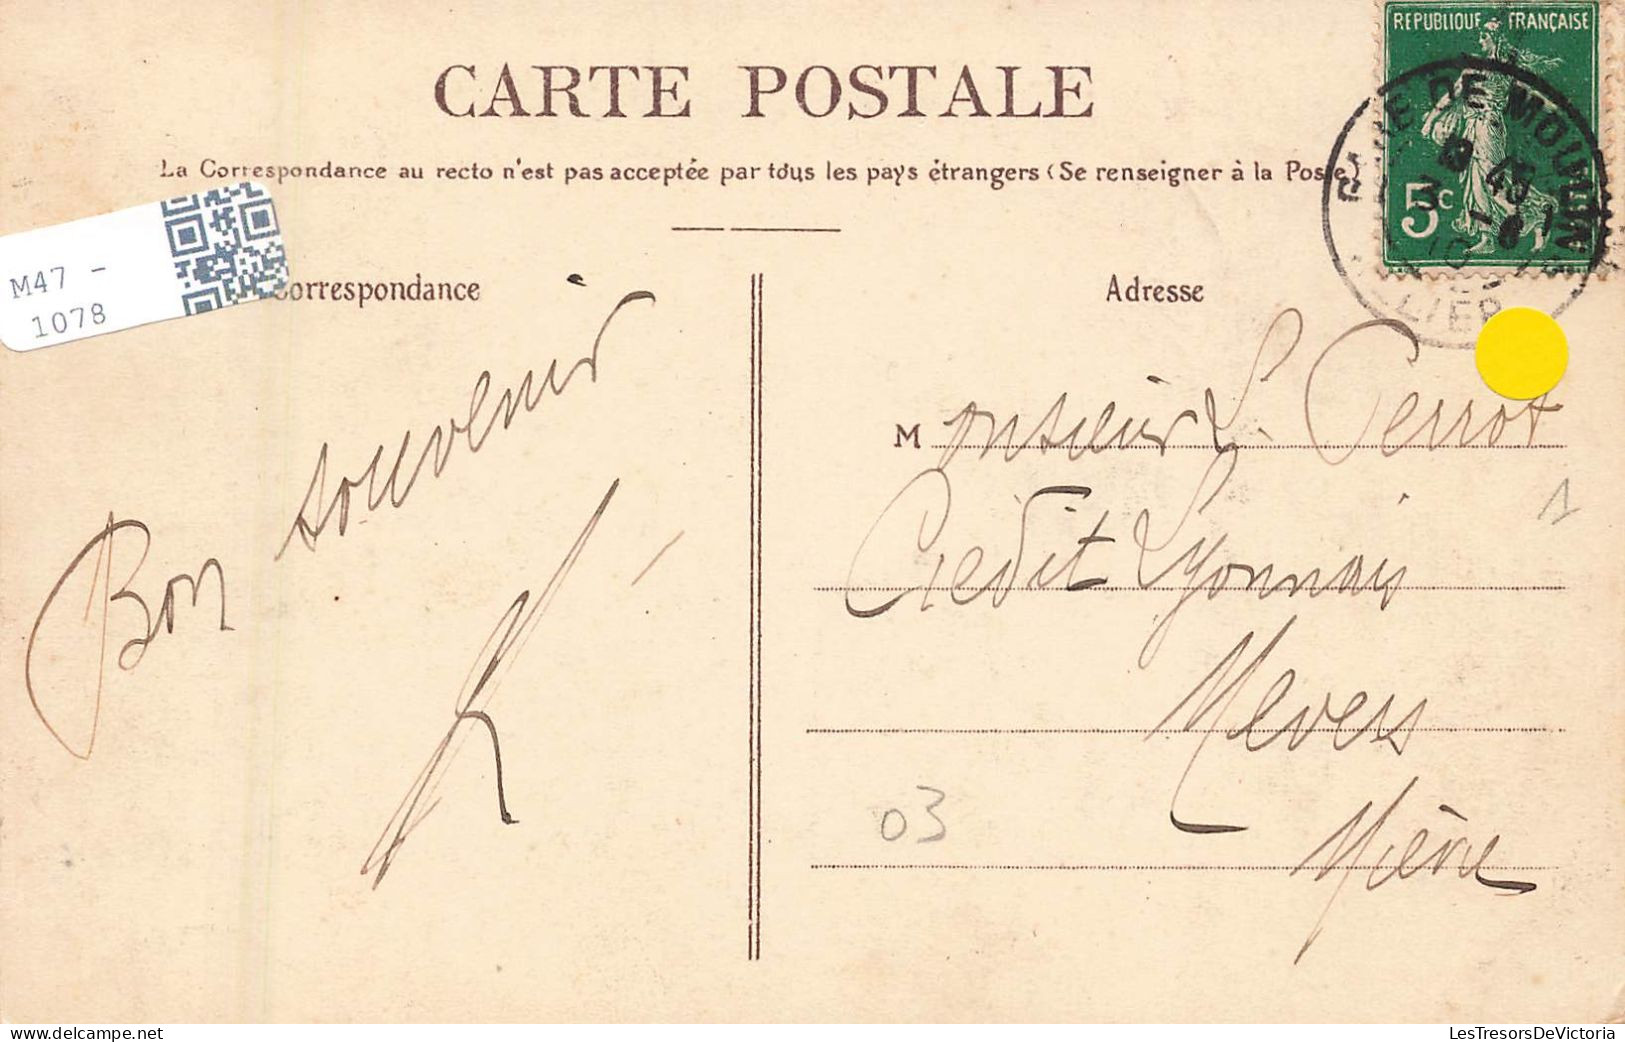 REPUBLIQUE FRANÇAISE
CARTE POSTALE
La Correspondance au recto n'est pas acceptée par tous les pays étrangers (Se renseigner à la Poste)
DE MOULIN
5c
LIER
M47 -
1078
Correspondance
Adresse
Bon souvenir
Monsieur L. Perrot
1
Crédit Lyonnais
Nevers
03
Nièvre
LesTresorsDeVictoria
www.delcampe.net